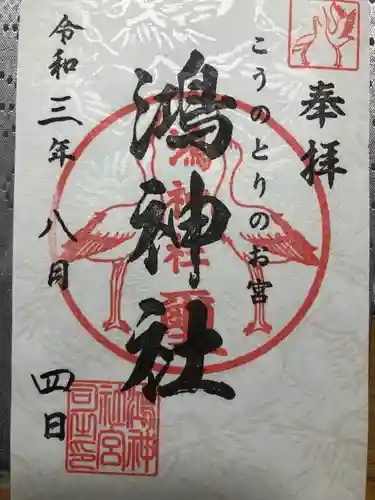 奉拝
こうのとりのお宮
鴻神社
令和三年八月四日
鴻神
社宮
司之印